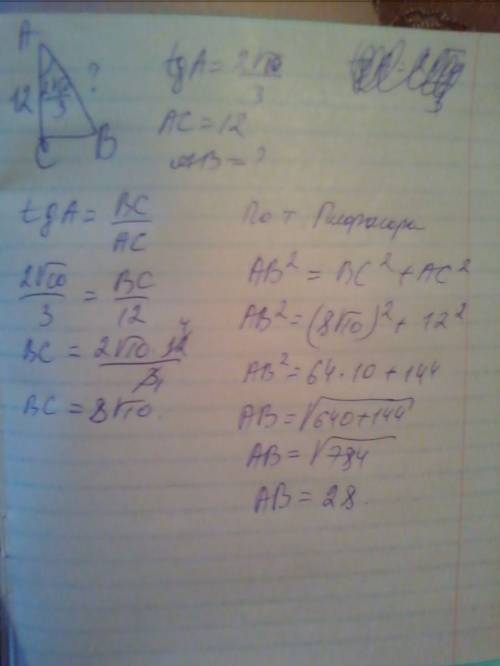 A
12
2√10/3
?
C
B
tgA = 2√10/3
AC = 12
AB = ?
tgA = BC/AC
2√10/3 = BC/12
BC = 2√10 · 12 4/3 1
BC = 8√10.
По т. Пифагора
AB² = BC² + AC²
AB² = (8√10)² + 12²
AB² = 64·10 + 144
AB = √640+144
AB = √784
AB = 28.